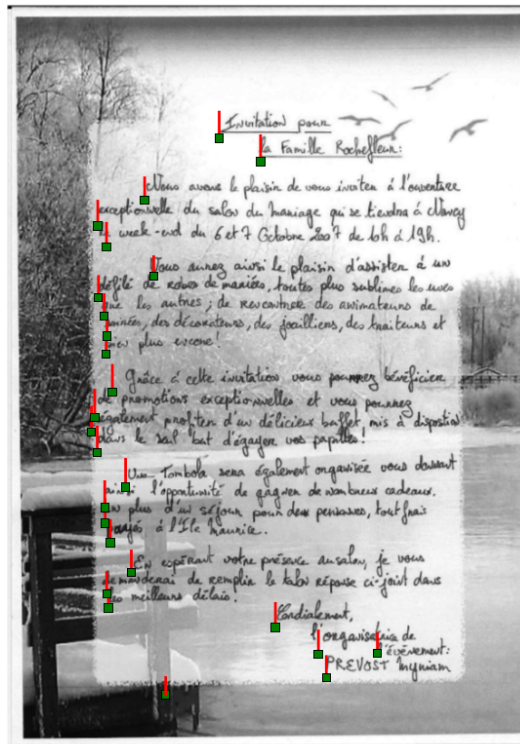 Invitation pour
la Famille Rochefleur:
Vous avons le plaisir de vous inviter à l'ouverture
exceptionnelle du salon du mariage qui se tiendra à Nancy
le week-end du 6 et 7 Octobre 2007 de 10h à 19h.
Vous aurez ainsi le plaisir d'assister à un
défilé de robes de mariées, toutes plus sublimes les unes
que les autres, de rencontrer des animateurs de
soirées, des décorateurs, des joailliers, des traiteurs et
bien plus encore!
Grâce à cette invitation vous pourrez bénéficier
de promotions exceptionnelles et vous pourrez
également profiter d'un délicieux buffet mis à disposition
dans le seul but d'égayer vos papilles!
Une Tombola sera également organisée vous donnant
ainsi l'opportunité de gagner de nombreux cadeaux.
en plus d'un séjour pour deux personnes, tout frais
payés à l'Ile Maurice.
En espérant votre présence au salon, je vous
demanderai de remplir le talon réponse ci-joint dans
les meilleurs délais.
Cordialement,
l'organisatrice de
l'événement:
PREVOST Myriam